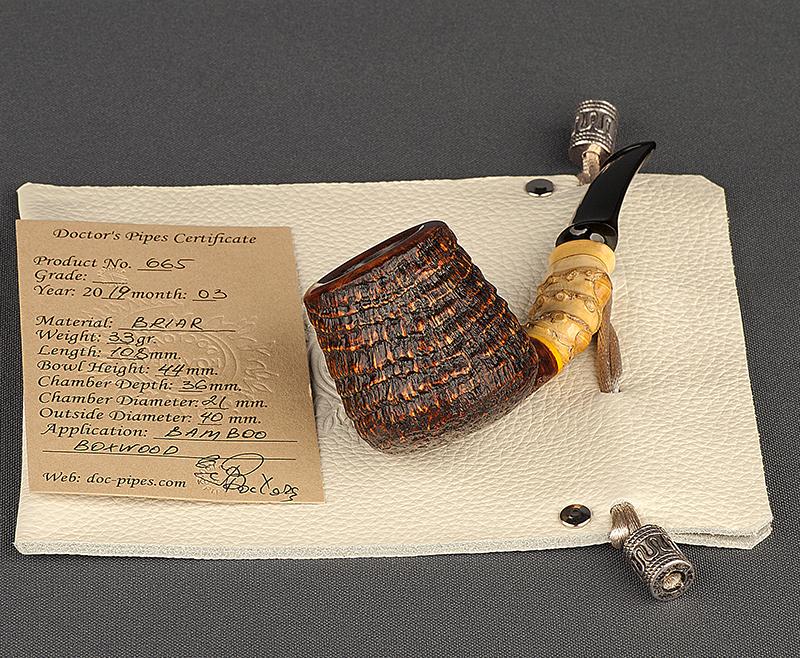 Doctor's Pipes Certificate
Product No. 665
Grade:
Year: 2019 month: 03
Material: BRIAR
Weight: 33 gr.
Length: 108 mm.
Bowl Height: 44 mm.
Chamber Depth: 36 mm.
Chamber Diameter: 21 mm.
Outside Diameter: 40 mm.
Application: BAMBOO
BOXWOOD
Web: doc-pipes.com